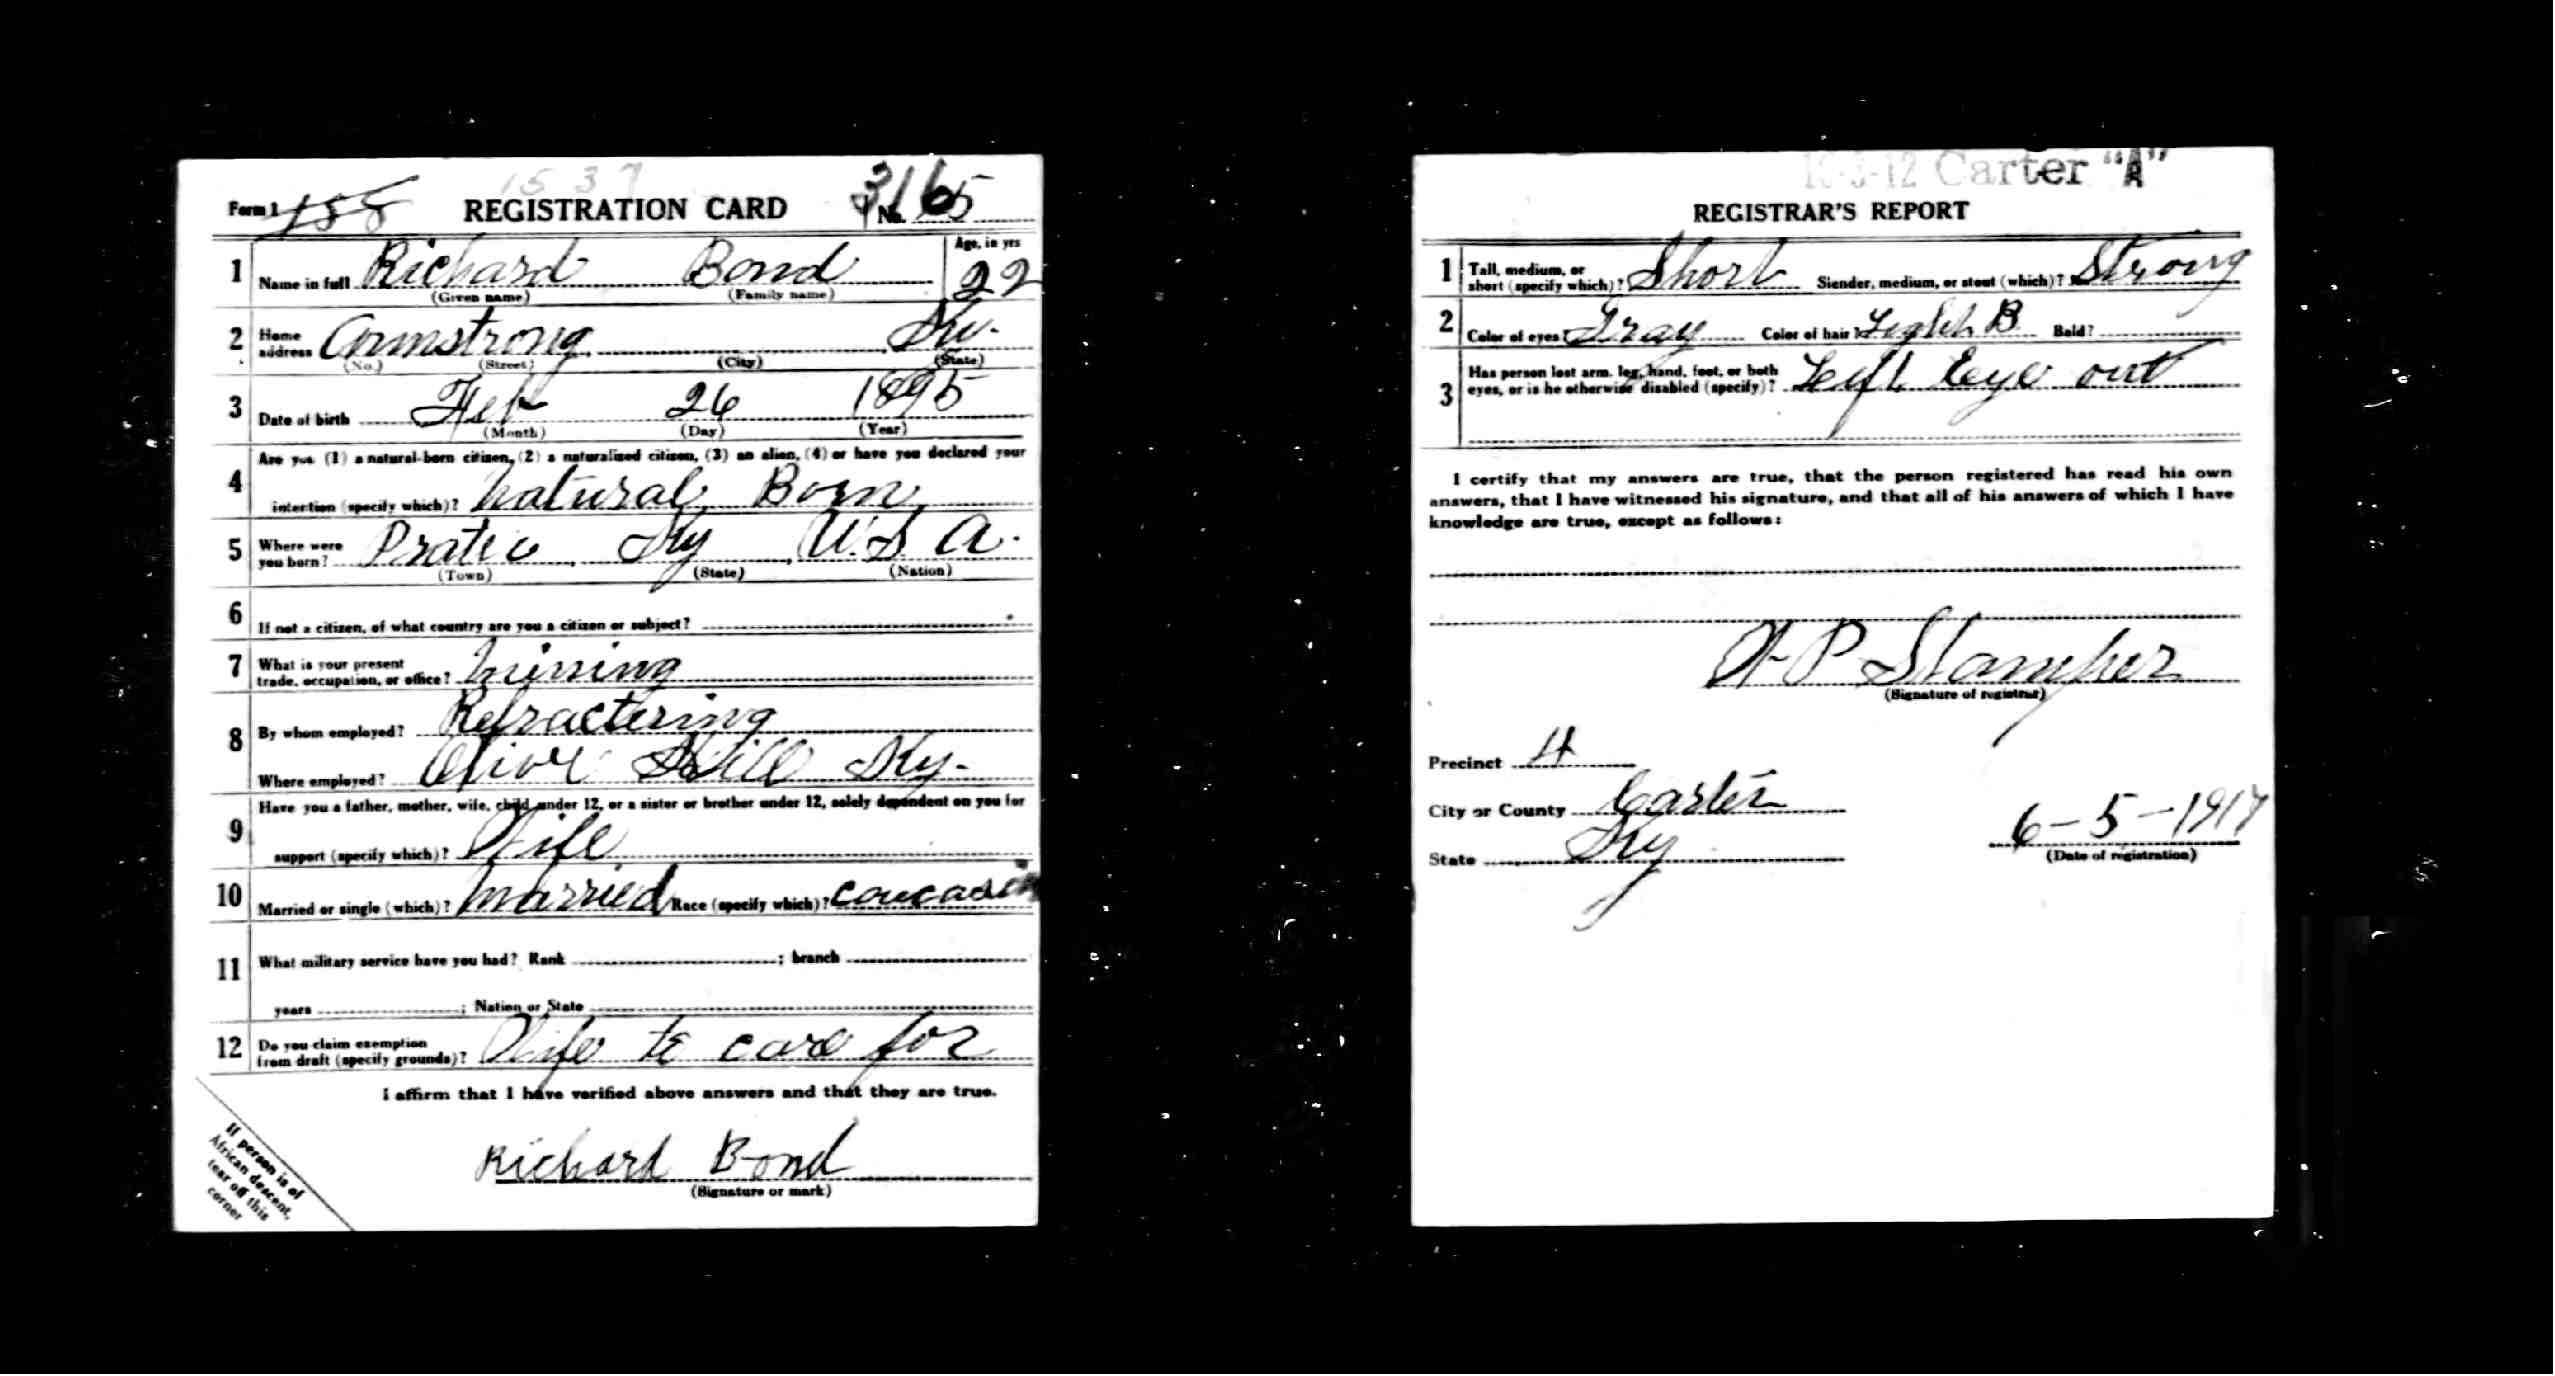 1537
Form 1 158 REGISTRATION CARD No. 65
316
Age, in yrs
1 Name in full Richard Bond 22
(Given name) (Family name)
2 Home address Armstrong, Ky.
(No.) (Street) (City) (State)
3 Date of birth Feb 26 1895
(Month) (Day) (Year)
Are you (1) a natural-born citizen, (2) a naturalized citizen, (3) an alien, (4) or have you declared your
4 intention (specify which)? Natural Born
5 Where were you born? Pratic Ky U.S A.
(Town) (State) (Nation)
6 If not a citizen, of what country are you a citizen or subject?
7 What is your present trade, occupation, or office? Mining
8 By whom employed? Refractering
Where employed? Olive Hill Ky.
Have you a father, mother, wife, child under 12, or a sister or brother under 12, solely dependent on you for
9 support (specify which)? Wife
10 Married or single (which)? Married Race (specify which)? Coucasin
11 What military service have you had? Rank ; branch
years ; Nation or State
12 Do you claim exemption from draft (specify grounds)? Wife to care for
I affirm that I have verified above answers and that they are true.
Richard Bond
(Signature or mark)
If person is of
African descent,
tear off this
corner
16-3-12 Carter "A"
REGISTRAR'S REPORT
1 Tall, medium, or short (specify which)? Short Slender, medium, or stout (which)? Strong
2 Color of eyes? Gray Color of hair? Light B Bald?
3 Has person lost arm, leg, hand, foot, or both
eyes, or is he otherwise disabled (specify)? Left Eye out
I certify that my answers are true, that the person registered has read his own
answers, that I have witnessed his signature, and that all of his answers of which I have
knowledge are true, except as follows:
P Stamper
(Signature of registrar)
Precinct 4
City or County Carter
State Ky 6-5-1917
(Date of registration)